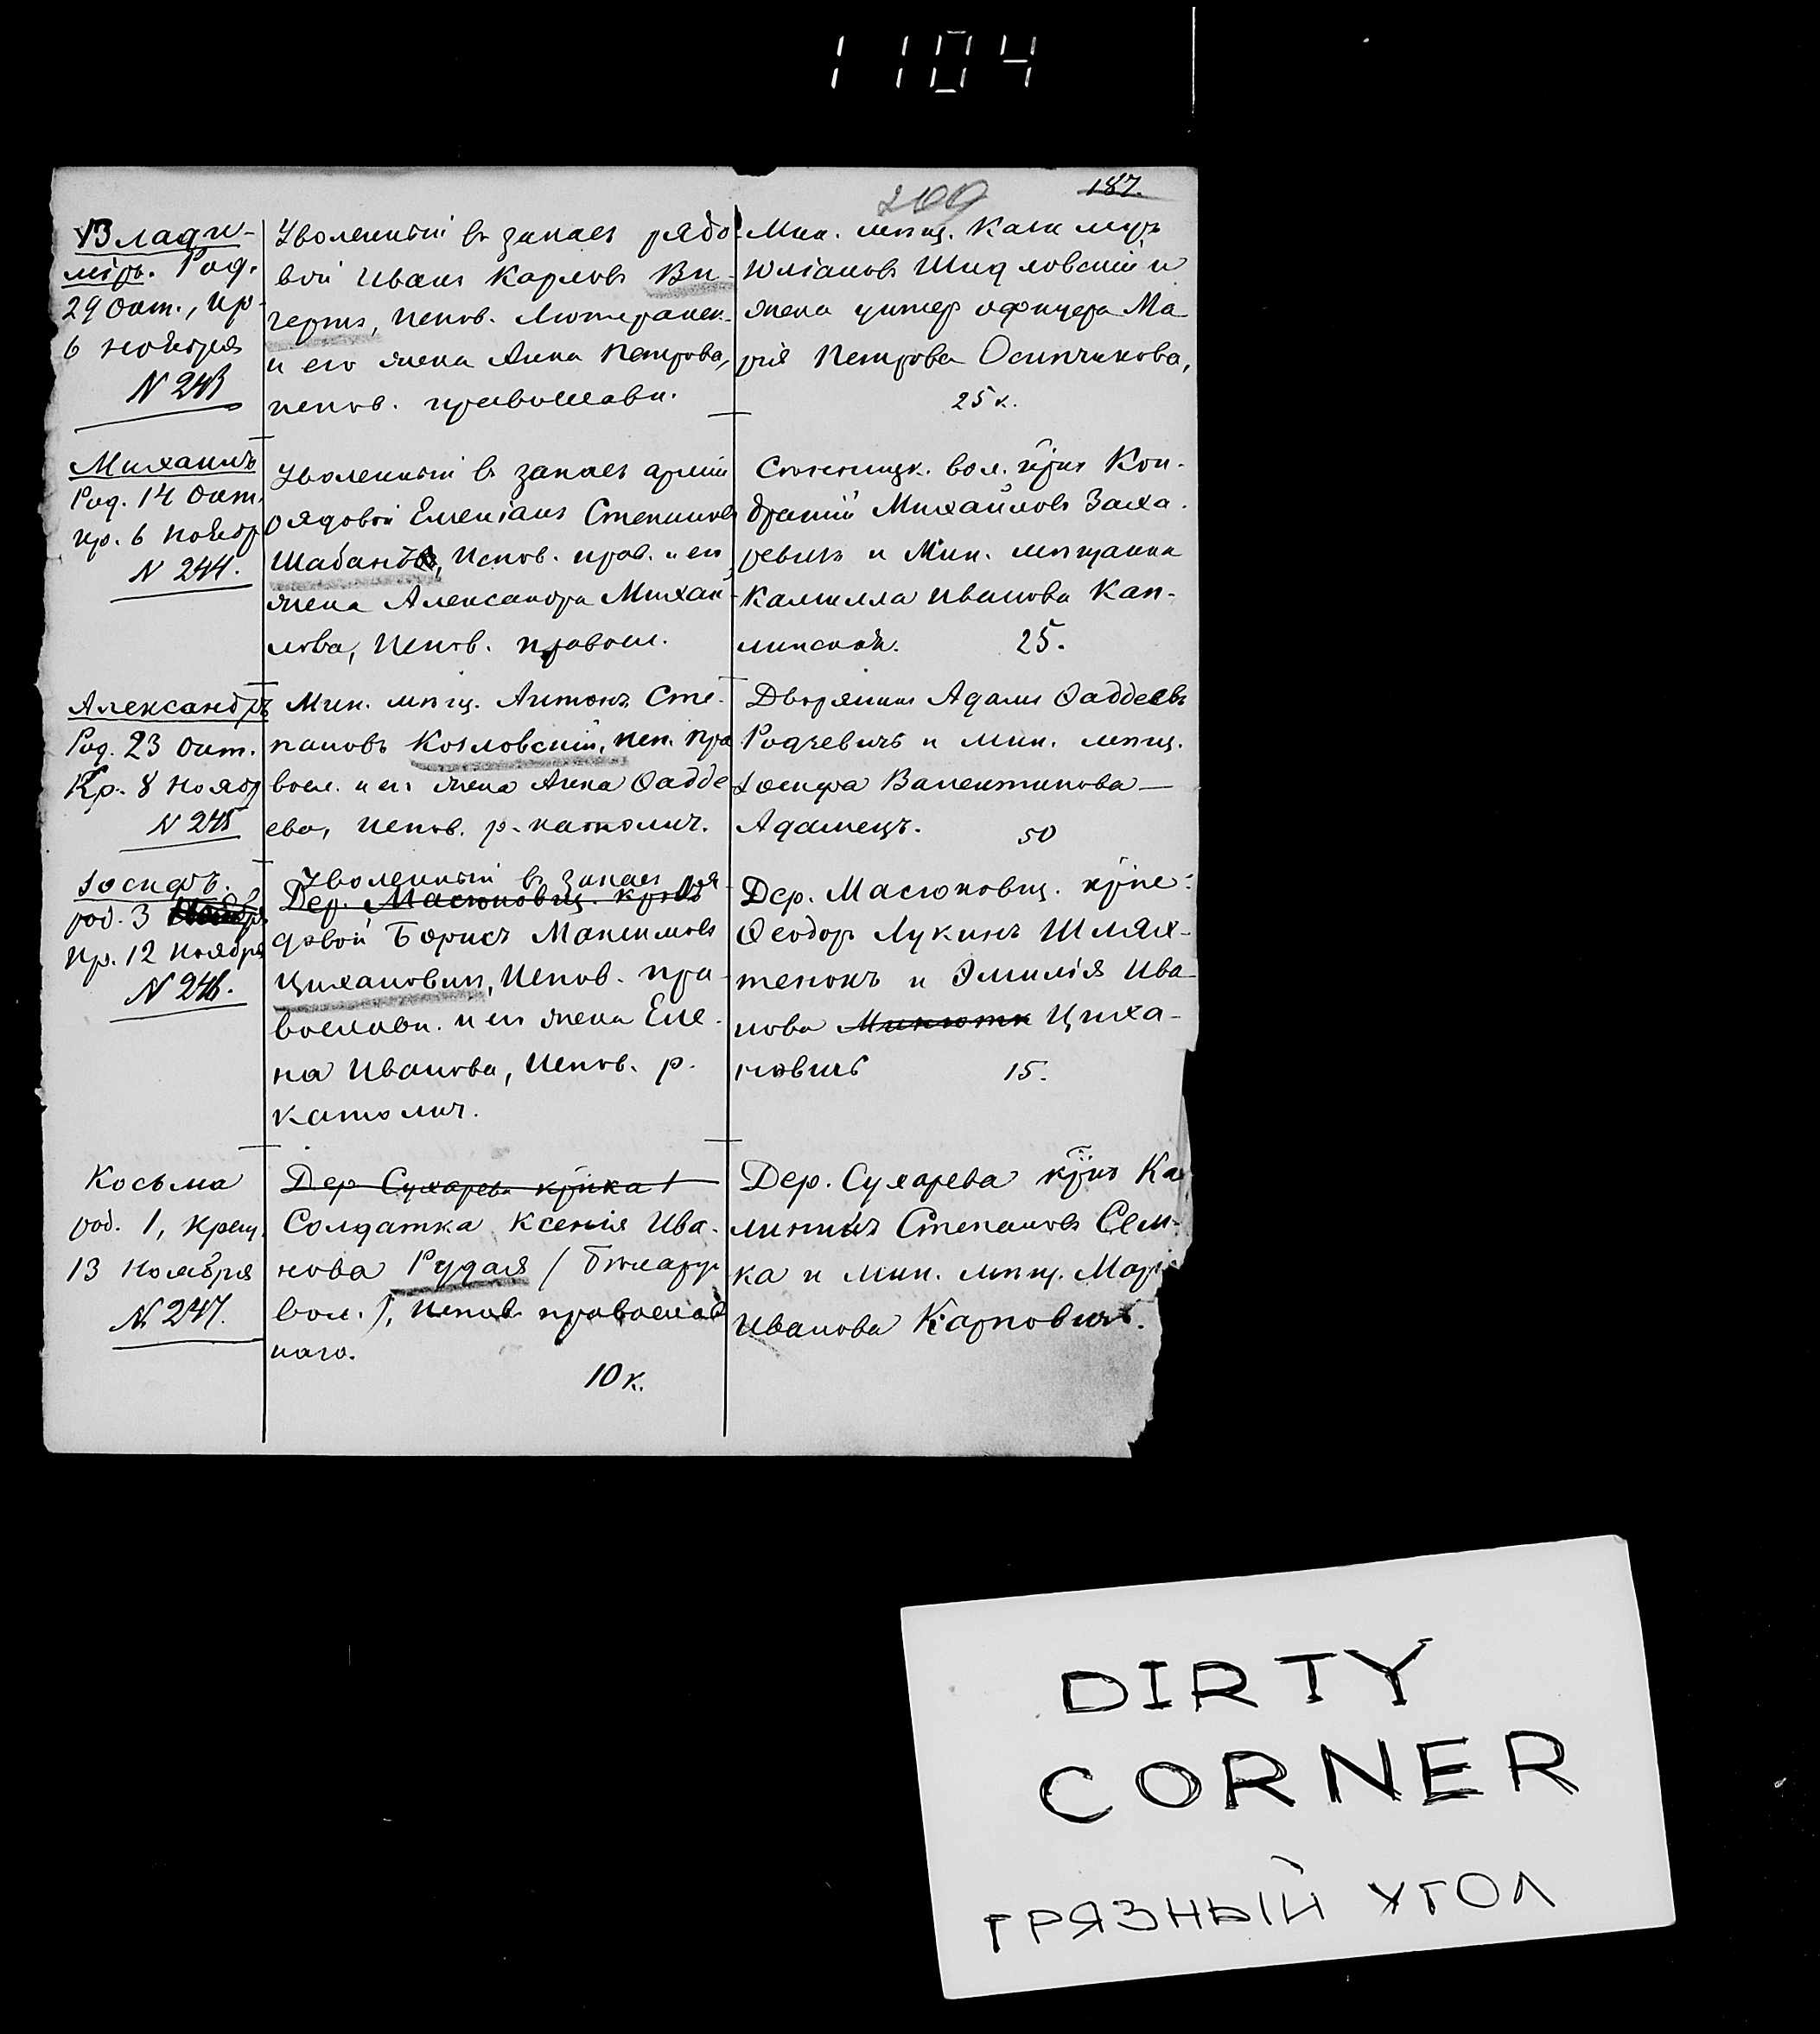 1104
187.
209
Влади-
міръ. Род.
29 Окт., кр.
6 ноября
N 243
Уволенный въ запасъ рядо-
вой Иванъ Карловъ Ви-
гертъ, испов. Лютеранск.
и его жена Анна Петрова,
испов. православн.
Мин. мѣщ. Казимиръ
Юліановъ Шидловскій и
жена унтер офицера Ма
рія Петрова Осипчикова,
25 к.
Михаилъ
Род. 14 Окт.
кр. 6 Ноябр
N 244.
Уволенный въ запасъ арміи
рядовой Емеліанъ Степановъ
Шабановъ, Испов. прав. и его
жена Александра Михаи-
лова, Испов. правосл.
вол. кр̃нъ Кон-
дратій Михайловъ Заха-
ревичъ и Мин. мѣщанка
Камилла Иванова Кап-
линская. 25.
Александръ
Род. 23 Окт.
Кр. 8 Нояб
N 245
Мин. мѣщ. Антонъ Сте-
пановъ Козловскій, исп. пра
восл. и его жена Анна Ѳадде
ева, Испов. р.-католич.
Дворянинъ Адамъ Ѳаддеевъ
Родзевичъ и мин. мѣщ.
Іосифа Валентинова—
Адамецъ. 50
Іосифъ.
род. 3 Ноября
Кр. 12 Ноября
N 246.
Уволенный въ запасъ ря
Дер. Масюковщ. кр̃нъ
довой Борисъ Максимовъ
Цихановичъ, Испов. пра-
вославн. и его жена Еле-
на Иванова, Испов. р.
католич.
Дер. Масюковщ. кр̃не:
Ѳеодоръ Лукинъ Шлях-
тенокъ и Эмилія Ива-
нова Цыха-
новичъ 15.
Косьма
род. 1, крещ.
13 Ноября
N 247.
Дер Сухарева кр̃нка /
Солдатка Ксенія Ива-
нова Рудая / Бѣларуч
вол. /, Испов. православ
наго.
10 к.
Дер. Сухарева кр̃нъ Ка
линикъ Степановъ Сем-
ка и Мин. мѣщ. Марі
Иванова Карповичъ.
DIRTY
CORNER
ГРЯЗНЫЙ УГОЛ